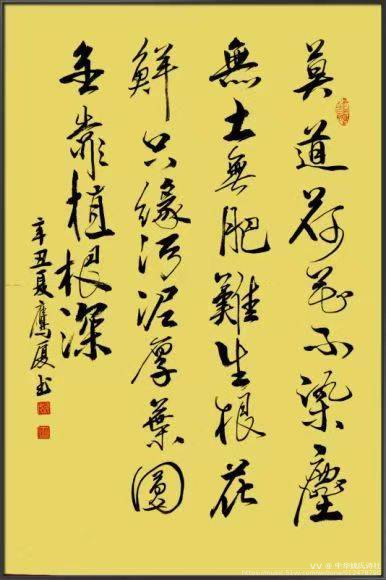 莫道荷花不染塵
無土無肥難生根花
鮮只緣污泥厚葉圓
全靠植根深
辛丑夏鷹厦书